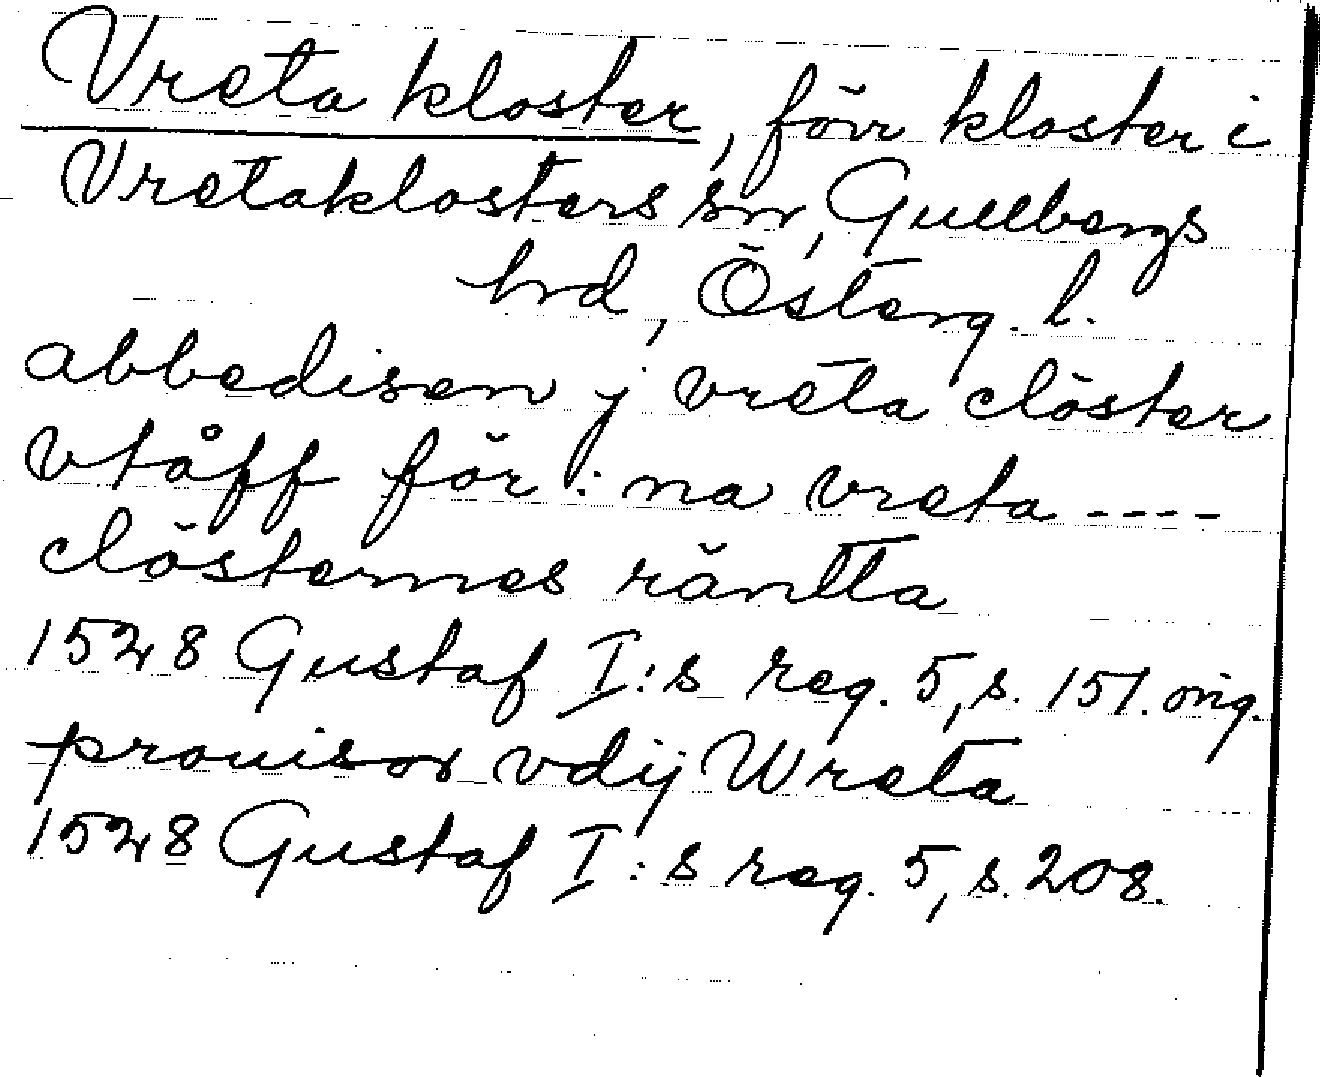 Vreta kloster, förr kloster i
Vretaklosters sn, Gullbergs
hrd, Österg. l.
abbedisen j vreta clöster
vtåff för:na vreta ----
clösternes räntta
1528 Gustaf I:s reg. 5, s. 151. orig.
prouisor vdij Wreta
1528 Gustaf I:s reg. 5, s. 208.